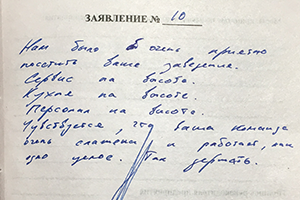 ЗАЯВЛЕНИЕ № 10
Нам было очень приятно
посетить ваше заведение.
Сервис на высоте.
Кухня на высоте.
Персонал на высоте.
Чувствуется, что ваша команда
очень слажена и работает, как
одно целое. Так держать.